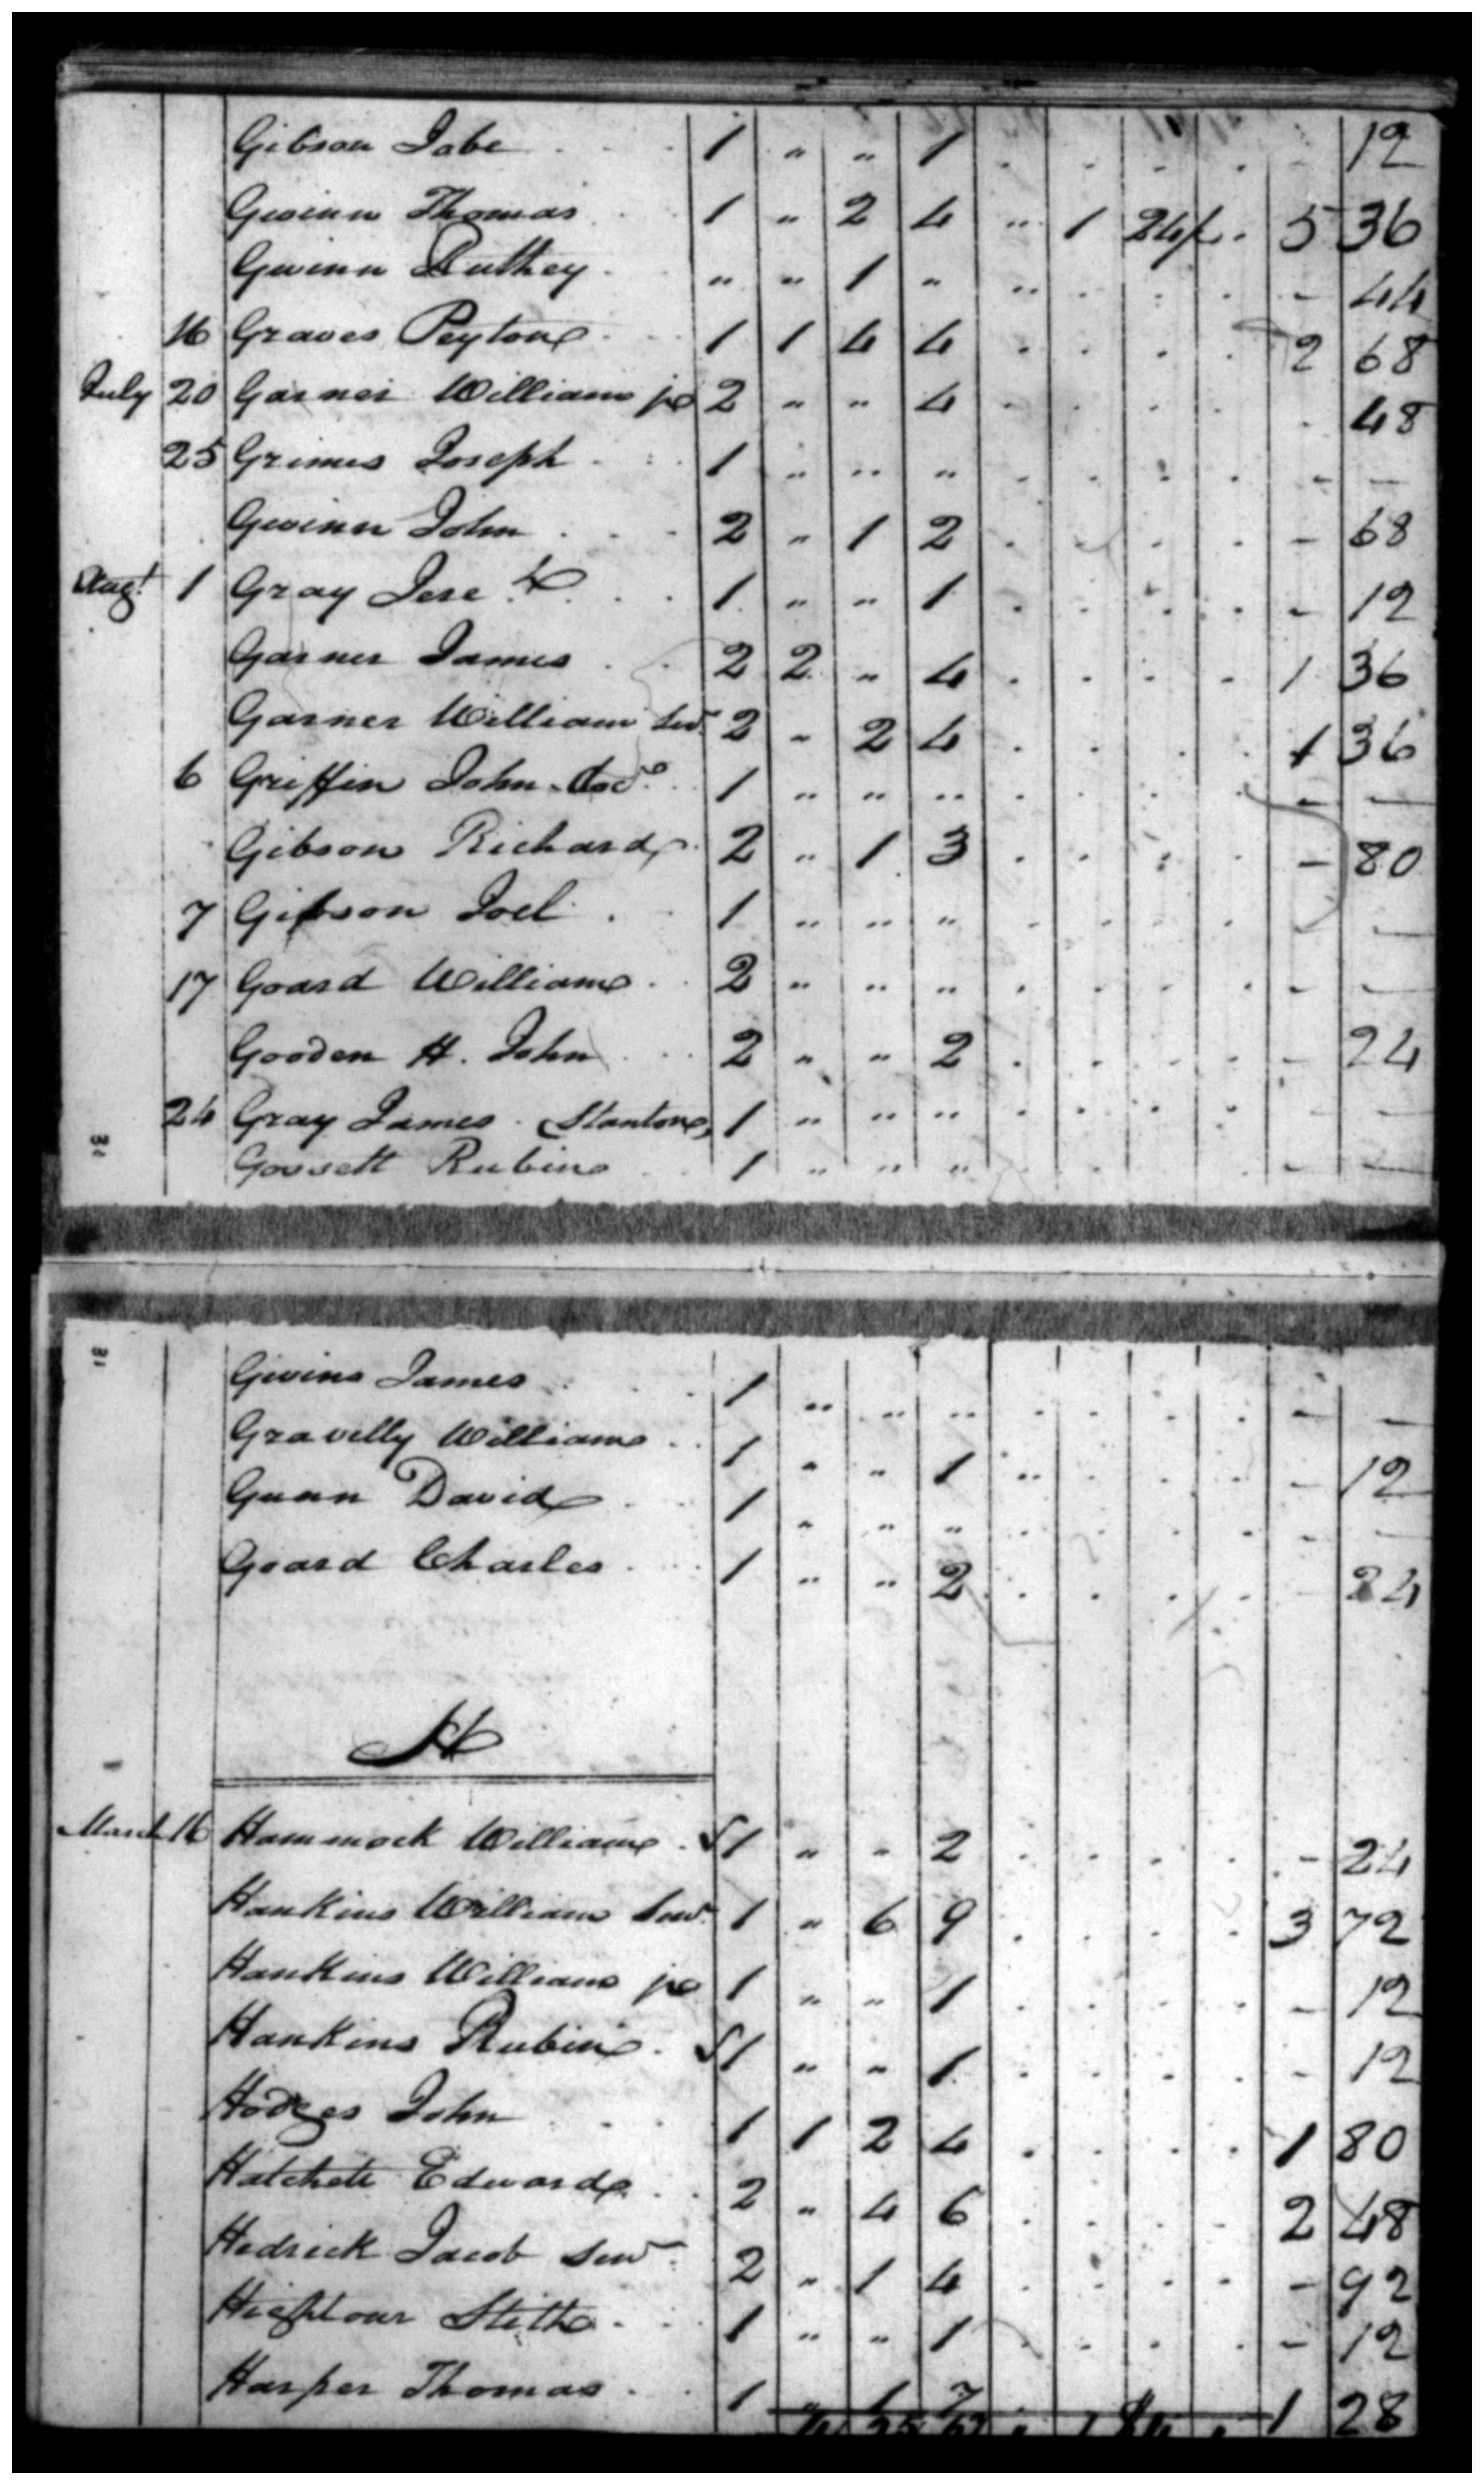 Gibson Jabe 1 " " 1 . . . . - 12
Gwinn Thomas 1 " 2 4 " 1 24/. . 5 36
Gwinn Ruthey " " 1 " " . . . - 44
16 Graves Peyton 1 1 4 4 . . . . 2 68
July 20 Garner William jr 2 " " 4 . . . . . 48
25 Grimes Joseph 1 " " " . . . . - -
Gwinn John 2 " 1 2 . . . . - 68
Augt 1 Gray Jere 1 " " 1 . . . . - 12
Garner James 2 2 " 4 . . . . 1 36
Garner William Senr 2 " 2 4 . . . . 1 36
6 Griffin John 1 " " " . . . . - -
Gibson Richard 2 " 1 3 . . . . - 80
7 Gibson Joel 1 " " " . . . . - -
17 Goard William 2 " " " . . . . - -
Gooden H. John 2 " " 2 . . . . - 24
24 Gray James Stanton 1 " " " . . . . - -
Gossett Rubin 1 " " " . . . . - -
Givins James 1 " " " . . . . - -
Gravelly William 1 " " 1 " . . . - 12
Gunn David 1 " " " . . . . - -
Goard Charles 1 " " 2 . . . . - 24
H
March 16 Hammock William √1 " " 2 . . . . - 24
Hankins William Senr 1 " 6 9 . . . . 3 72
Hankins William jr 1 " " 1 . . . . - 12
Hankins Rubin √1 " " 1 . . . . - 12
Hodges John 1 1 2 4 . . . . 1 80
Hatchett Edward 2 " 4 6 . . . . 2 48
Hedrick Jacob Senr 2 " 1 4 . . . . - 92
Hightour Stith 1 " " 1 . . . . - 12
Harper Thomas 1 " 1 7 . . . . 1 28